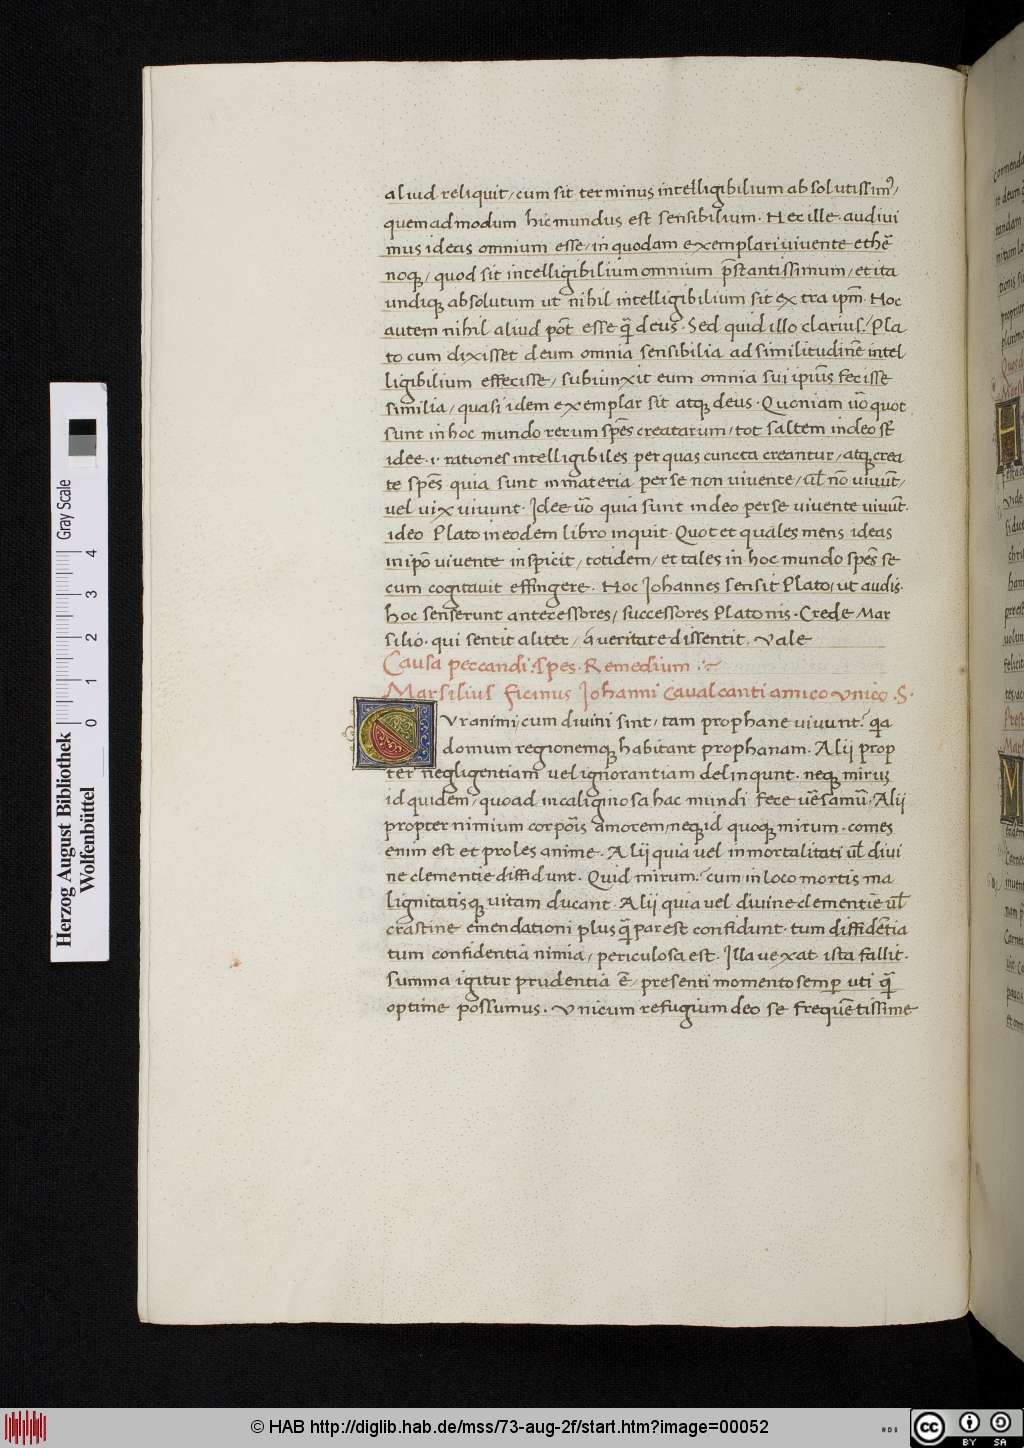 aliud reliquit / cum sit terminus intelligibilium absolutissimꝰ /
quemadmodum hic mundus est sensibilium. Hec ille. audivi
mus ideas omnium esse / in quodam exemplari vivente ethē
noqꝫ / quod sit intelligibilium omnium p̄stantissimum / et ita
undiqꝫ absolutum ut nihil intelligibilium sit extra ipm̄. Hoc
autem nihil aliud pōt esse q̄ deus. Sed quid illo clarius? Pla
to cum dixisset deum omnia sensibilia ad similitudinē intel
ligibilium effecisse / subiunxit eum omnia sui ipiūs fecisse
similia / quasi idem exemplar sit atqꝫ deus. Quoniam ūo quot
sunt in hoc mundo rerum spēs creatarum / tot saltem in deo st̄
idee .i. rationes intelligibiles per quas cuncta creantur / atqꝫ crea
te spēs quia sunt in materia per se non vivente / ul̄ nō vivūt /
vel vix vivunt. Idee ūo quia sunt in deo per se vivente vivūt.
ideo Plato in eodem libro inquit Quot et quales mens ideas
in ipō vivente inspicit / totidem / et tales in hoc mundo spēs se
cum cogitavit effingere. Hoc Johannes sensit Plato / ut audis.
hoc senserunt antecessores / successores Platonis. Crede Mar
silio. qui sentit aliter / a veritate dissentit. Vale
Causa peccandi. Spes. Remedium
Marsilius ficinus Johanni Cavalcanti amico unico .S.
CUr animi cum divini sint / tam prophane vivunt? q̄a
domum regionemqꝫ habitant prophanam. Alii prop
ter negligentiam vel ignorantiam delinqunt. neqꝫ mirum
id quidem / quoad in caliginosa hac mundi fece ūesamū. Alii
propter nimium corpōis amorem / neqꝫ id quoqꝫ mirum. comes
enim est et proles anime. Alii quia vel inmortalitati ul̄ divi
ne clementie diffidunt. Quid mirum? cum in loco mortis ma
lignitatisqꝫ vitam ducant. Alii quia vel divine clementie ul̄
crastine emendationi plus q̄ par est confidunt. tum diffidētia
tum confidentia nimia / periculosa est. Illa vexat ista fallit.
summa igitur prudentia ē / presenti momento semp̱ uti q̄
optime possumus. Unicum refugium deo se frequētissime
Herzog August Bibliothek
Wolfenbüttel
0 1 2 3 4
Gray Scale
© HAB http://diglib.hab.de/mss/73-aug-2f/start.htm?image=00052
cc BY SA